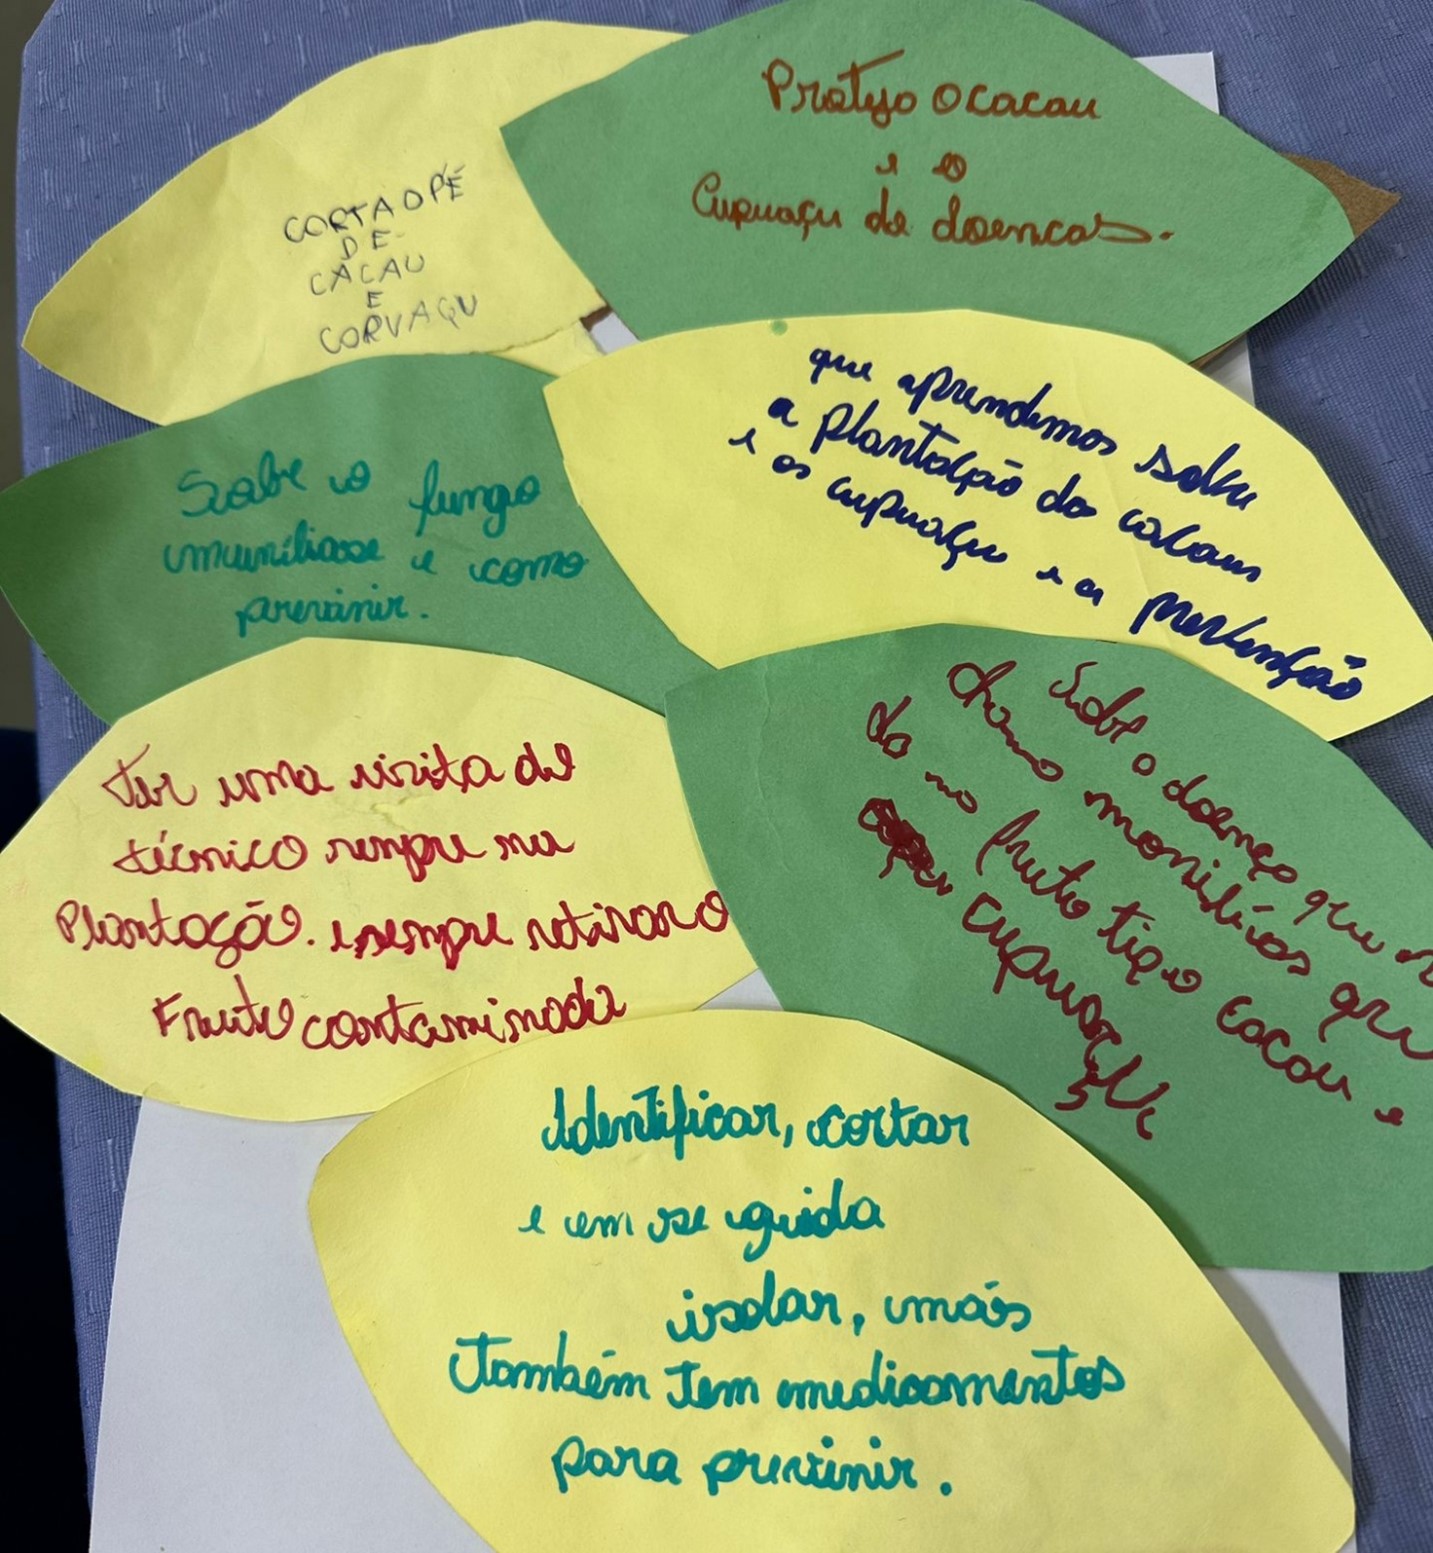 CORTA O PÉ
DE
CACAU
E
CORVAÇU
Protejo o cacau
e o
Cupuaçu de doencas.
Sobre o fungo
muniliase e como
prevenir.
que aprendemos sobre
a plantação do cacau
e os cupuaçu e a prevenção
Ter uma visita de
técnico sempre na
Plantação. e sempre retirar o
Fruito contaminado
Sobre o doença que
chamo monilíos que
da no fruto tipo cacau e
cupuaçu
Identificar, cortar
e em se guida
isolar, mais
Também Tem medicamentos
para prevenir.